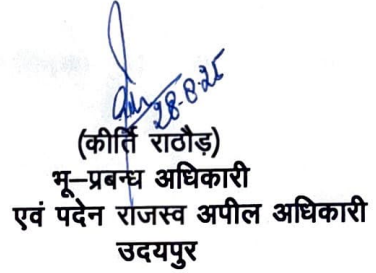 28-8-25
(कीर्ति राठौड़)
भू–प्रबन्ध अधिकारी
एवं पदेन राजस्व अपील अधिकारी
उदयपुर